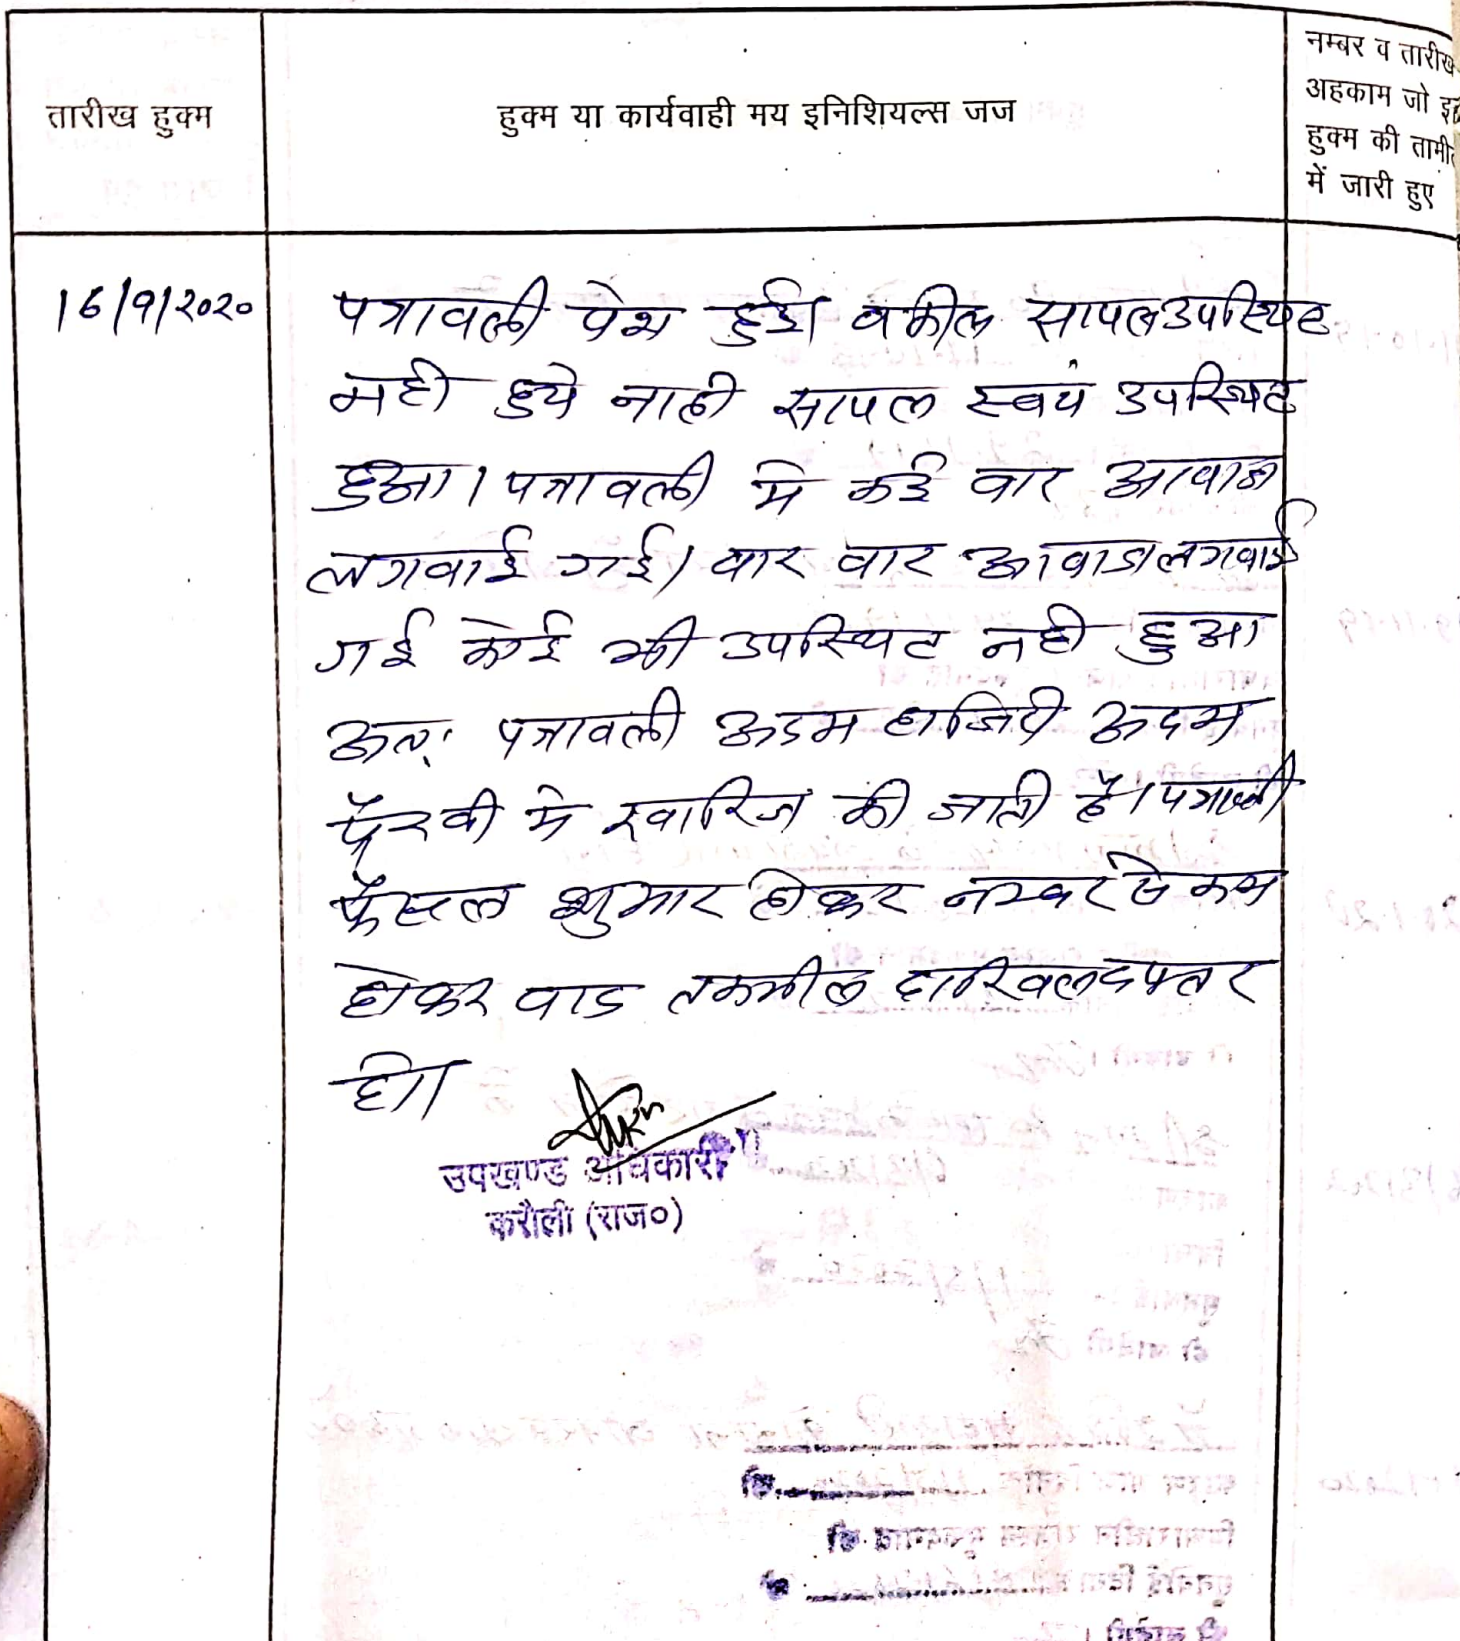 तारीख हुक्म
हुक्म या कार्यवाही मय इनिशियल्स जज
नम्बर व तारीख
अहकाम जो इस
हुक्म की तामील
में जारी हुए
16/9/2020
पत्रावली पेश हुई। वकील सायल उपस्थित
नही हुये नाही सायल स्वयं उपस्थित
हुआ। पत्रावली मे कई वार आवाज
लगवाई गई। वार वार आवाज लगवाई
गई कोई भी उपस्थित नही हुआ
अत: पत्रावली अदम हाजिरी अदम
पैरवी मे खारिज की जाती है। पत्रावली
फैसल शुमार होकर नम्वर से कम
होकर वाद तकमील दाखिल दफ्तर
हो।
उपखण्ड अधिकारी
करौली (राज०)